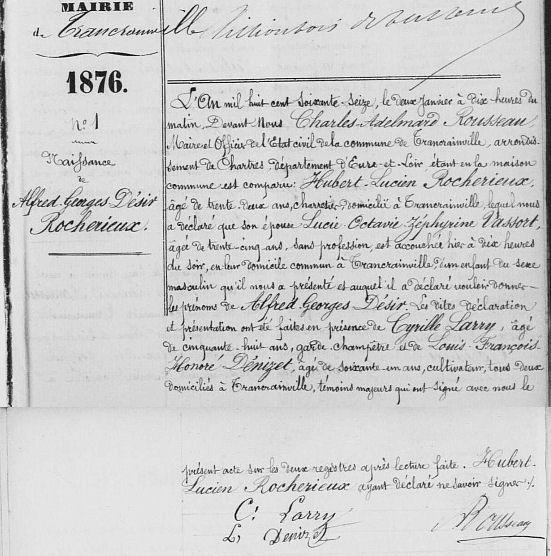 MAIRIE
de Trancrainville
1876.
n° 1
Naissance
de
Alfred Georges Désir
Rocherieux.
L'An mil huit cent soixante-seize, le deux Janvier à dix heures du
matin, Devant Nous Charles Adelmard Rousseau,
Maire et Officier de l'Etat civil de la commune de Trancrainville, arrondis-
sement de Chartres département d'Eure-et-Loir étant en la maison
commune est comparu: Hubert-Lucien Rocherieux,
âgé de trente deux ans, charretier, domicilié à Trancrainville, lequel nous
a déclaré que son épouse Lucie Octavie Zéphyrine Vassort,
âgée de trente cinq ans, sans profession, est accouchée hier à dix heures
du soir, en leur domicile commun à Trancrainville d'un enfant du sexe
masculin qu'il nous a présenté et auquel il a déclaré vouloir donner
les prénoms de Alfred Georges Désir. Les dites déclaration
et présentation ont été faites en présence de Cyrille Larry, âgé
de cinquante-huit ans, garde champêtre et de Louis François
Honoré Dénizet, âgé de soixante un ans, cultivateur, tous deux
domiciliés à Trancrainville, témoins majeurs qui ont signé avec nous le
présent acte sur les deux registres après lecture faite. Hubert-
Lucien Rocherieux ayant déclaré ne savoir signer ./.
C. Larry
L. Denizet
Rousseau